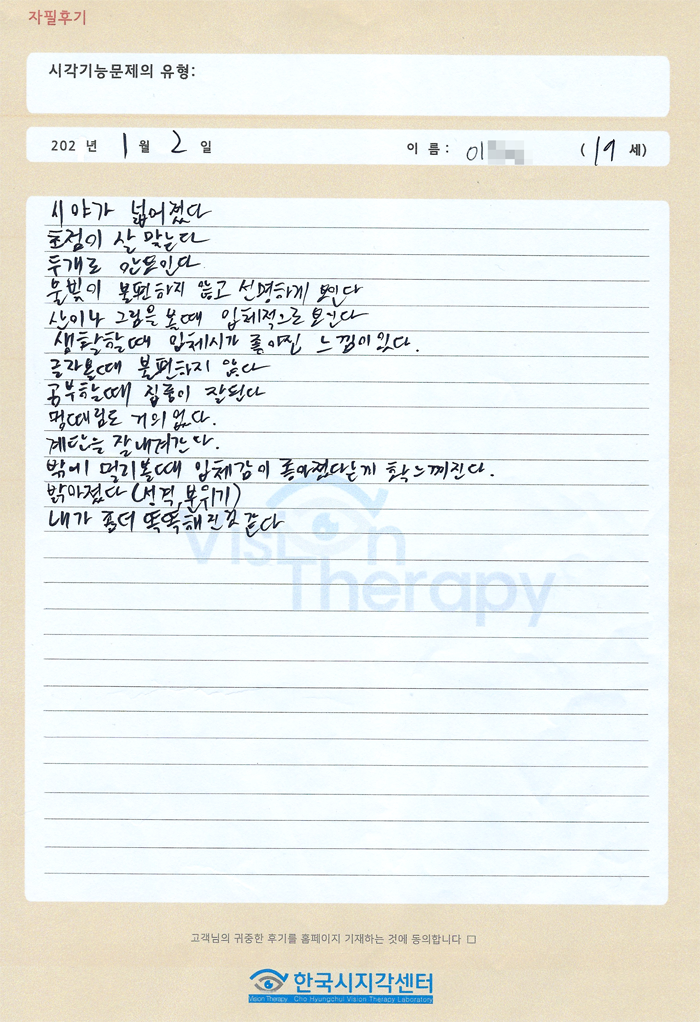 자필후기
시각기능문제의 유형:
202 년 1 월 2 일 이 름 : 이 ( 19 세)
시야가 넓어졌다
초점이 잘 맞는다
두개로 안보인다
불빛이 불편하지 않고 선명하게 보인다
산이나 그림을 볼때 입체적으로 보인다
생활할때 입체시가 좋아진 느낌이있다.
글자볼때 불편하지 않다
공부할때 집중이 잘된다
멍때림도 거의없다.
계단을 잘내려간다.
밖에 멀리볼때 입체감이 좋아졌다는게 확느껴진다.
밝아졌다 (성격,분위기)
내가 좀더 똑똑해진것같다
Vision
Therapy
고객님의 귀중한 후기를 홈페이지 기재하는 것에 동의합니다 □
한국시지각센터
Vision Therapy Cho Hyungchul Vision Therapy Laboratory